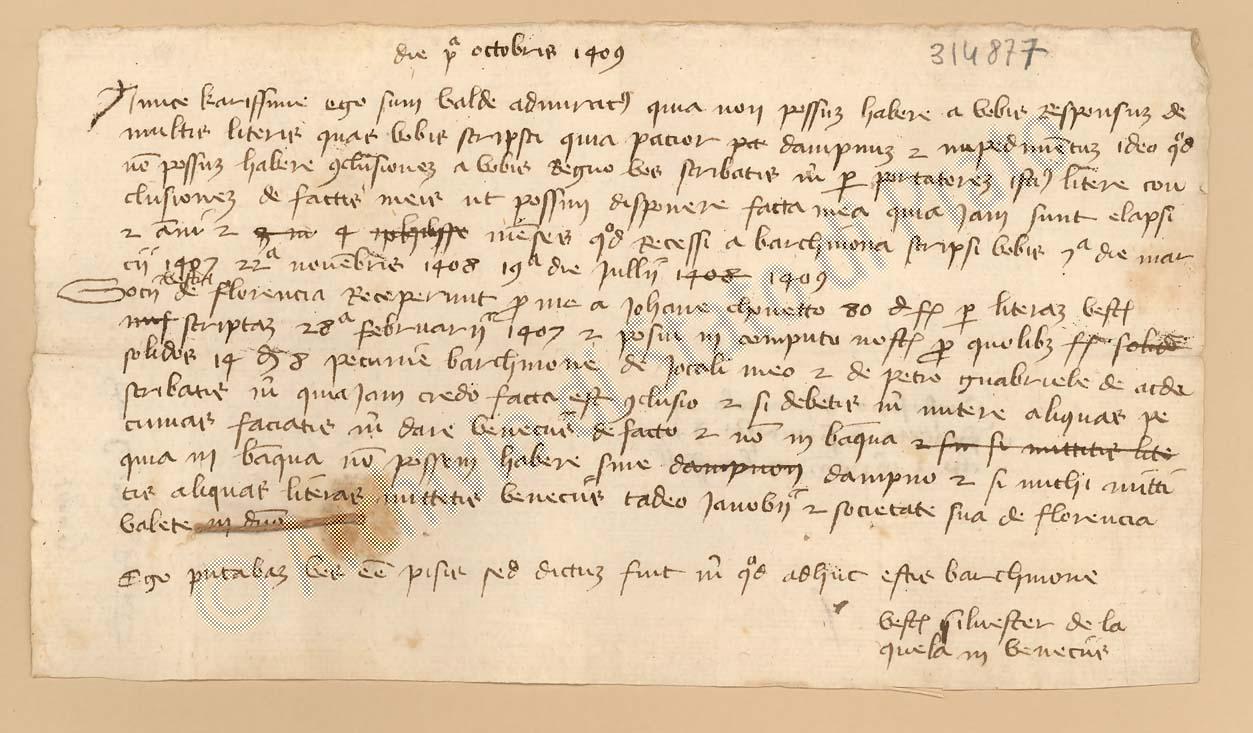 die pª octobris 1409
314877
Amice karissime ego sum valde admiratus quia non possum habere a vobis responsum de
multis literis quas vobis scripsi quia pacior dampnum et impedimentum ideo quod
non possum habere conclusionem a vobis Regno vos scribatis michi per portatorem istius litere con
clusionem de factis meis ut possim disponere facta mea quia Jam sunt elapsi
2 anni et 4 menses quod Recessi a barchinona scripsi vobis 7ª die mar
cii 1407 22ª novembris 1408 19ª die Jullii 1408 1409
Socii vestri de florencia Receperunt pro me a Johane chovetto 80 per literam vestram
scriptam 28ª februarii 1407 et posui in computo nostro pro quolibet ff solido
solidos 14 8 pecunie barchinone de Jocali meo et de petro guabriele de
scribatis michi quia Jam credo facta est conclusio et si debetis michi mitere aliquas pe
cunias faciatis michi dare veneciis de facto et non in banqua et si mittitis lite
quia in banqua non possem habere sine dampnon dampno et si michi mitti
tis aliquas literas mittetis veneciis tadeo Janobii et societate sua de florencia
valete in domino
Ego putabam vos esse pisis sed dictum fuit michi quod adhuc estis barchinone
vester silvester de la
quela in veneciis